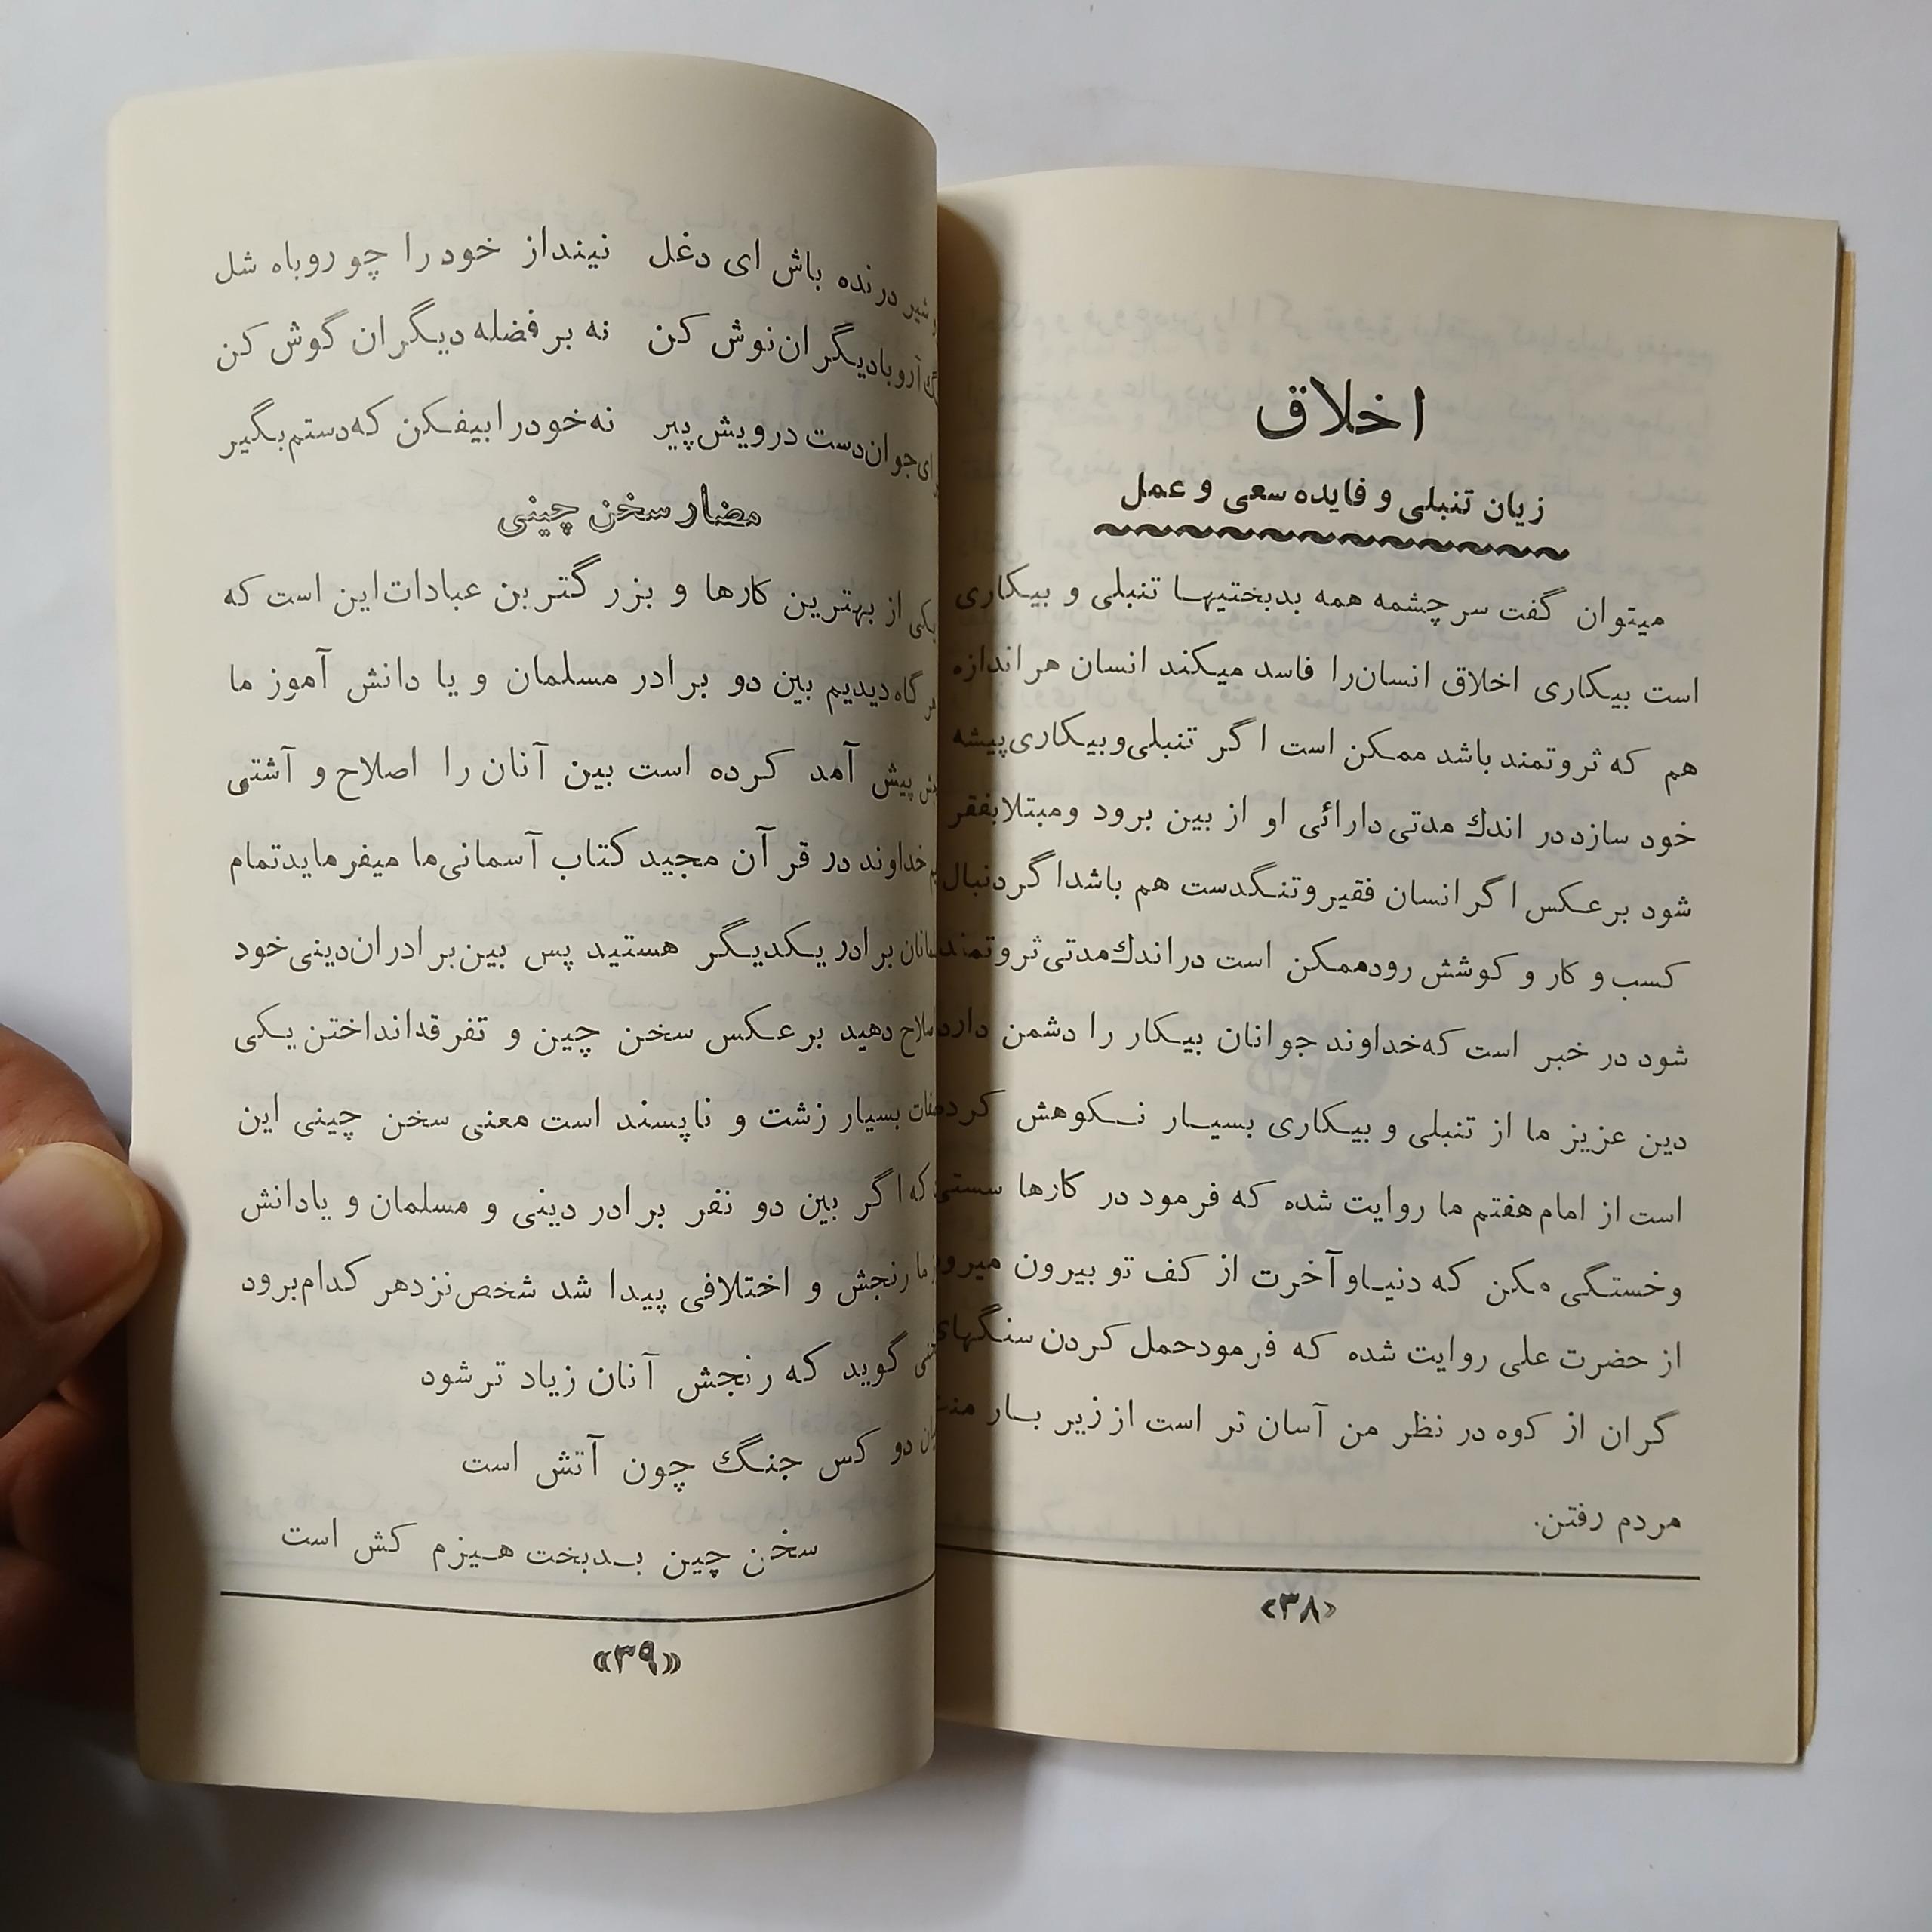 اخلاق
زیان تنبلی و فایده سعی و عمل
میتوان گفت سرچشمه همه بدبختیهـا تنبلی و بیـکاری
است بیـکاری اخلاق انسان‌را فاسد میکند انسان هراندازه
هم که ثروتمند باشد ممکن است اگر تنبلی‌وبیـکاری‌پیشه
خود سازد در اندك مدتی دارائی او از بین برود ومبتلابفقر
شود برعـکس اگر انسان فقیروتنـگدست هم باشداگردنبال
کسب و کار و کوشش رودممکن است دراندك‌مدتی‌ثروتمند
شود در خبر است که‌خداوند جوانان بیـکار را دشمن دارد
دین عزیز ما از تنبلی و بیـکاری بسیـار نـکوهش کرده
است از امام‌هفتم ما روایت شده که فرمود در کارها سستی
وخستـگی مکن که دنیـاوآخرت از کف تو بیرون میرود
از حضرت علی روایت شده که فرمودحمل کردن سنـگهای
گران از کوه در نظر من آسان تر است از زیر بـار
مردم رفتن.
«۳۸»
شیر درنده باش ای دغل نینداز خود را چو روباه شل
بادیگران‌نوش کن نه بر فضله دیـگران گوش کن
ای‌جوان‌دست درویش‌پیر نه‌خودرا بیفـکن که‌دستم‌بگیر
مضار سخن چینی
یکی از بهترین کارها و بزرگترین عبادات‌این است که
هر گاه‌دیدیم بین دو برادر مسلمان و یا دانش آموز ما
پیش آمد کرده است بین آنان را اصلاح و آشتی
خداوند در قرآن مجید کتاب آسمانی‌ما میفرمایدتمام
برادر یـکدیـگر هستید پس بین‌برادران‌دینی‌خود
اصلاح دهید برعـکس سخن چین و تفرقه‌انداختن‌یـکی
بسیار زشت و ناپسند است معنی سخن چینی این
که‌اگر بین دو نفر برادر دینی و مسلمان و یادانش
رنجش و اختلافی پیدا شد شخص‌نزدهر کدام‌برود
گوید که رنجش آنان زیاد ترشود
دو کس جنـگ چون آتش است
سخن چین بـدبخت هـیزم کش است
«۳۹»